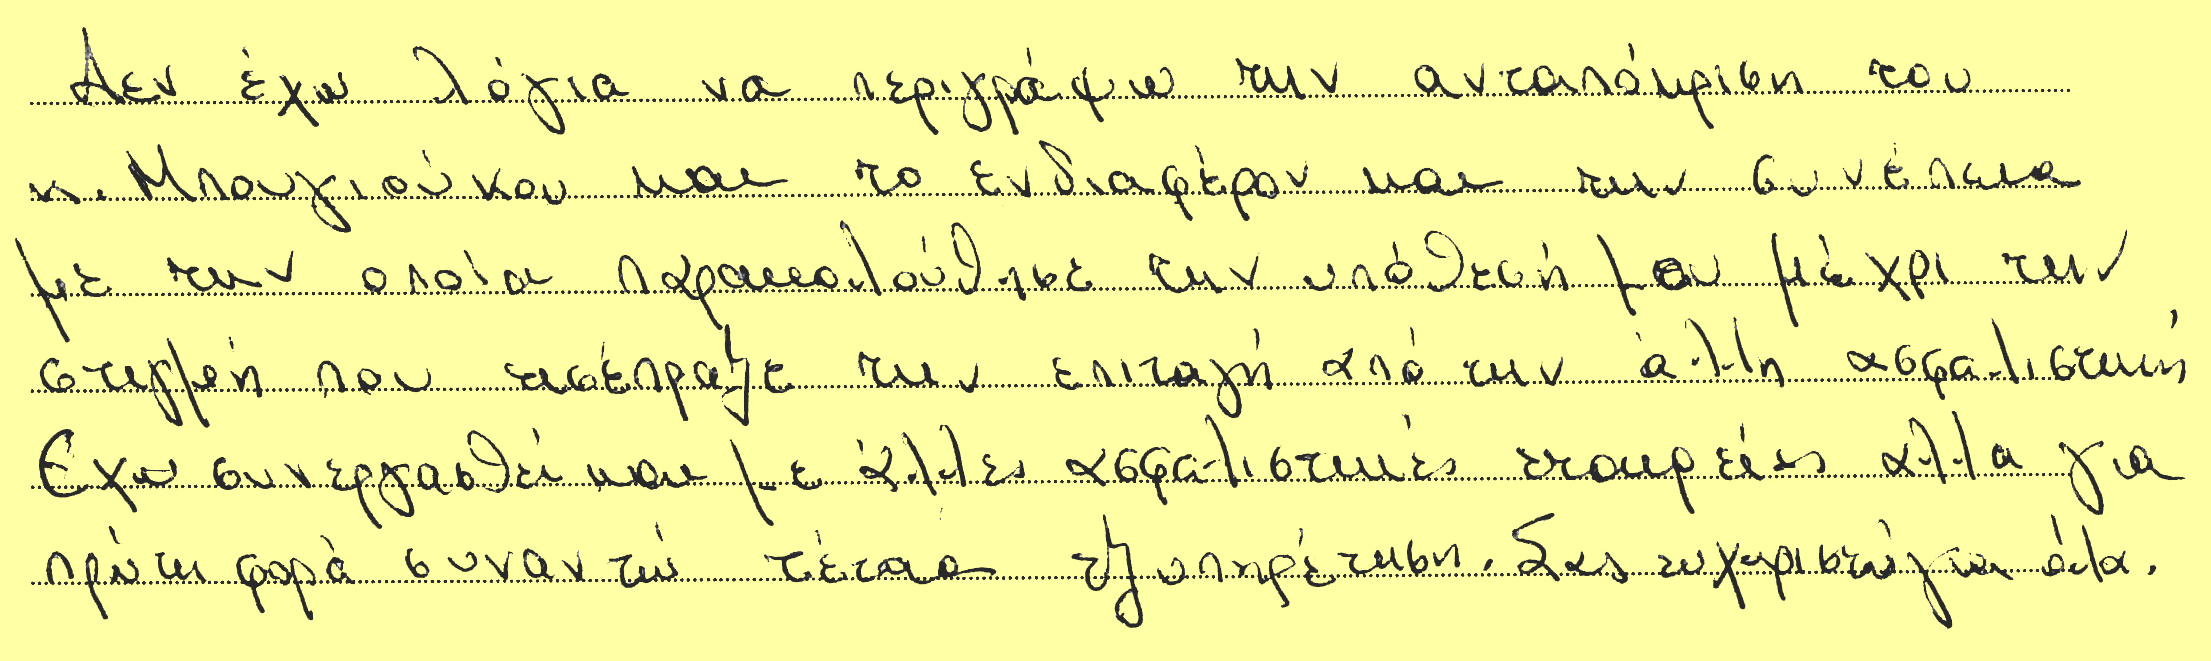 Δεν έχω λόγια να περιγράψω την ανταπόκριση του
κ. Μπουγιούκου και το ενδιαφέρον και την συνέπεια
με την οποία παρακολούθησε την υπόθεσή μου μέχρι την
στιγμή που εισέπραξε την επιταγή από την άλλη ασφαλιστική
Έχω συνεργασθεί και με άλλες ασφαλιστικές εταιρείες αλλα για
πρώτη φορά συναντώ τέτοια εξυπηρέτηση. Σας ευχαριστώ για όλα.